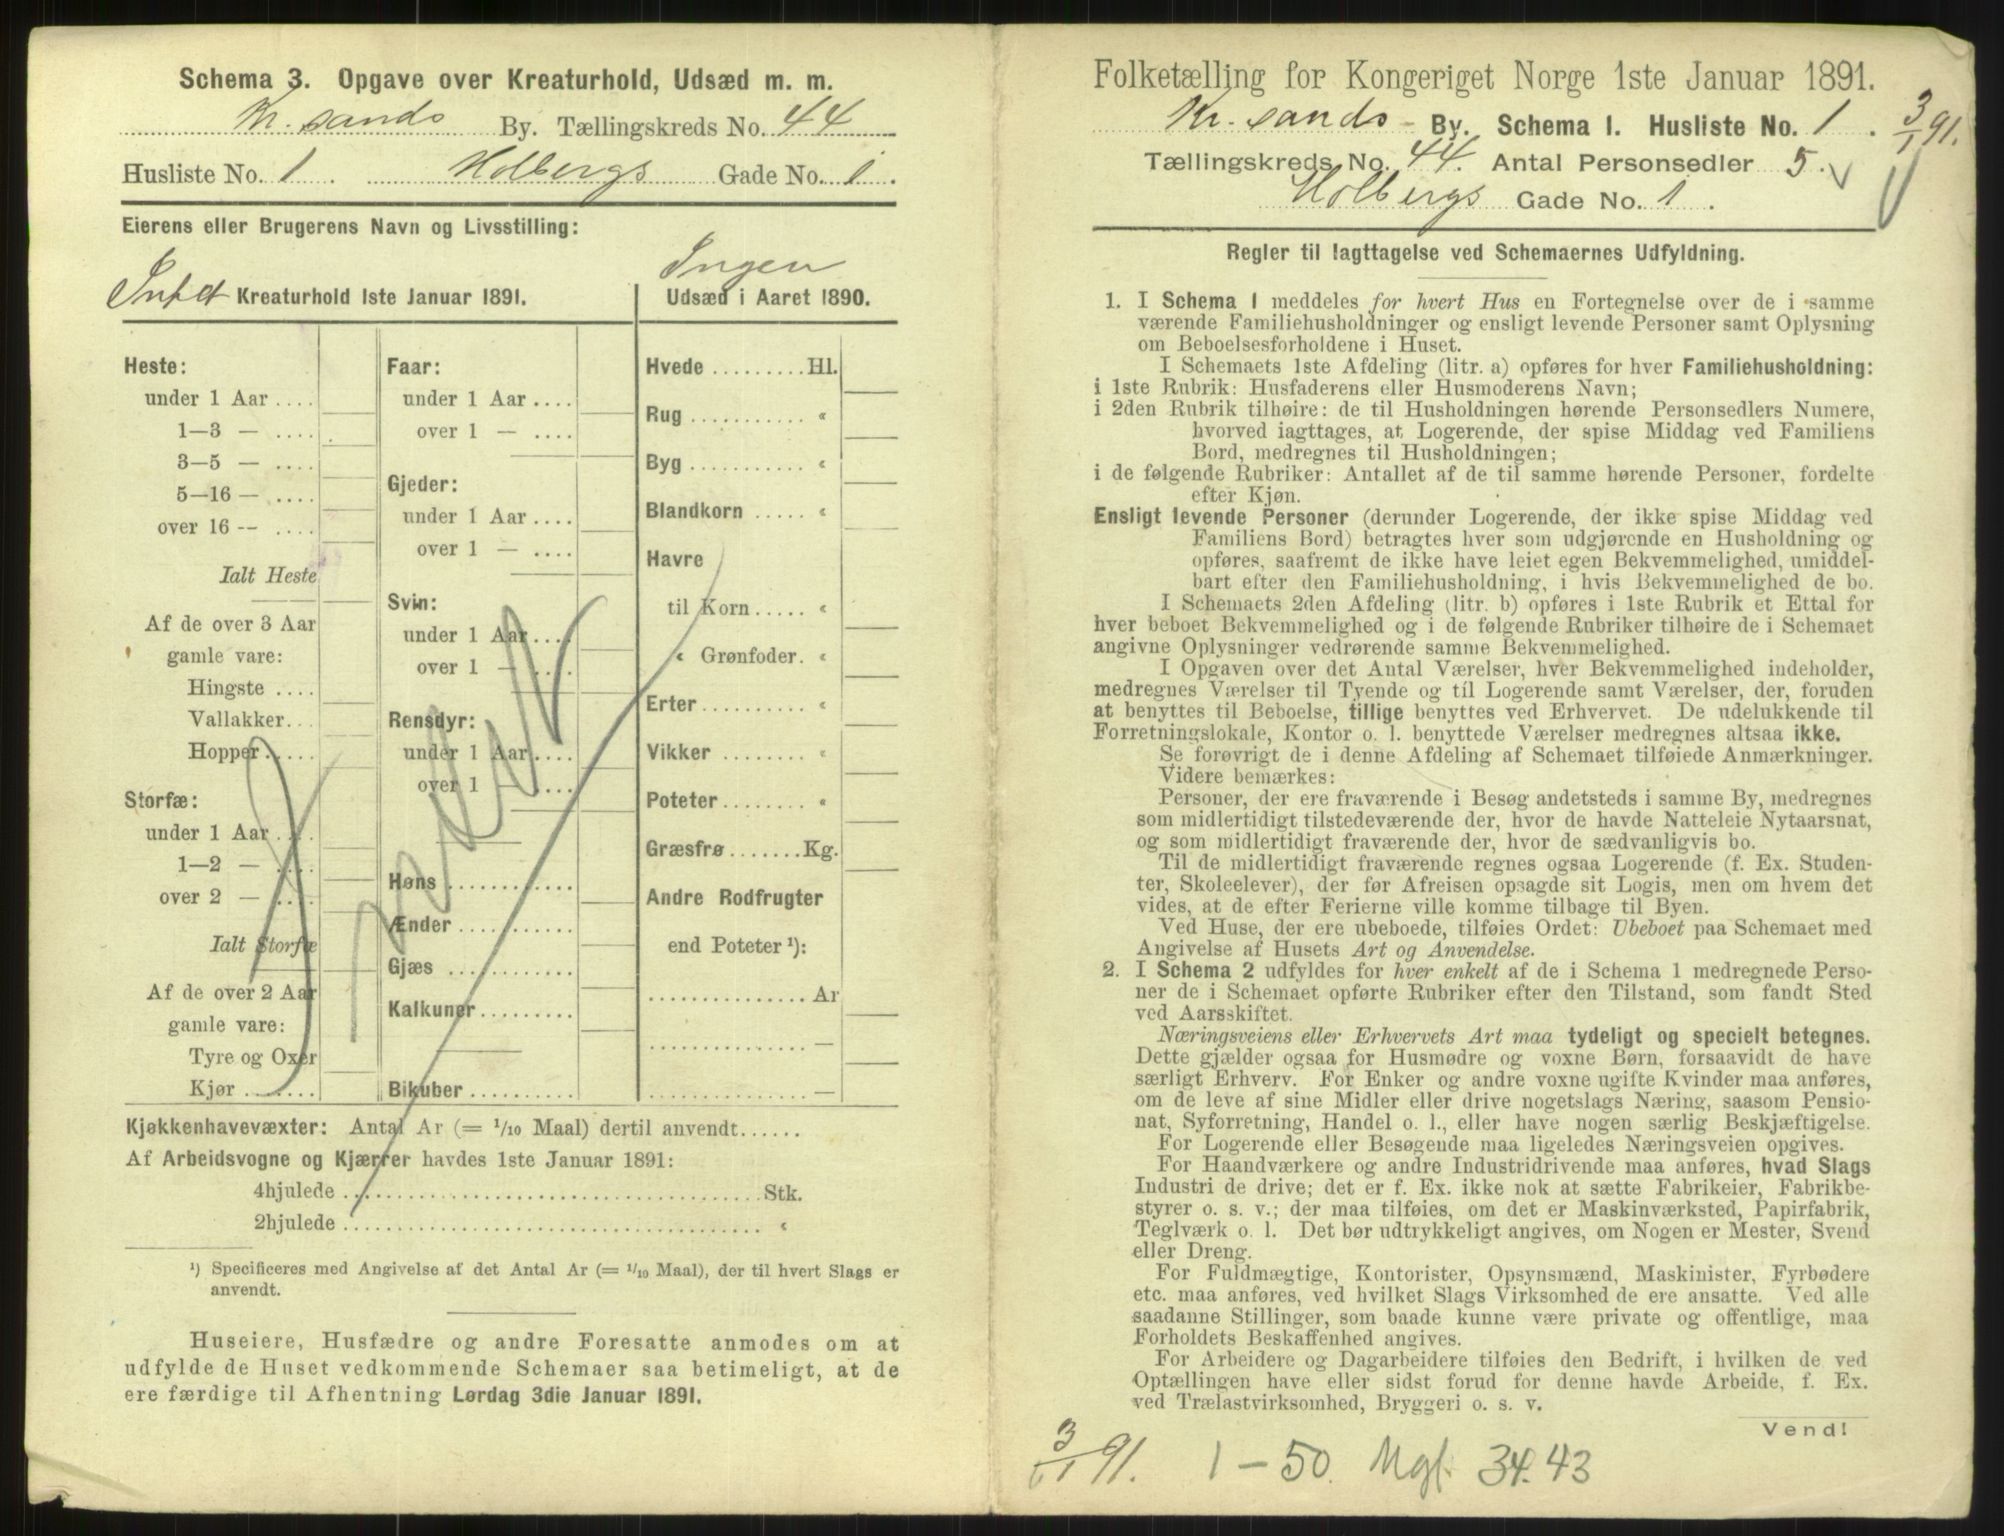 Schema 3. Opgave over Kreaturhold, Udsæd m. m.
Kr. sands By. Tællingskreds No. 44
Husliste No. 1 . Holbergs Gade No. 1.
Eierens eller Brugerens Navn og Livsstilling:
Intet Kreaturhold 1ste Januar 1891.
Heste:
under 1 Aar ....
1—3 — ....
3—5 — ....
5—16 — ....
over 16 -- ....
Ialt Heste
Af de over 3 Aar
gamle vare:
Hingste ....
Vallakker...
Hopper.....
Storfæ:
under 1 Aar ....
1—2 — ....
over 2 — ....
Ialt Storfæ
Af de over 2 Aar
gamle vare:
Tyre og Oxer
Kjør .......
Faar:
under 1 Aar ....
over 1 — ....
Gjeder:
under 1 Aar ....
over 1 — ....
Svin:
under 1 Aar ....
over 1 — ....
Rensdyr:
under 1 Aar ....
over 1 — ....
Høns ............
Ænder ...........
Gjæs ............
Kalkuner.........
Bikuber ..........
Ingen
Udsæd i Aaret 1890.
Hvede .........Hl.
Rug ........... «
Byg ........... «
Blandkorn ..... «
Havre
til Korn ..... «
« Grønfoder. «
Erter.......... «
Vikker ........ «
Poteter........ «
Græsfrø.......Kg.
Andre Rodfrugter
end Poteter ¹):
............... Ar
............... —
............... —
Kjøkkenhavevæxter: Antal Ar (= 1/10 Maal) dertil anvendt......
Af Arbeidsvogne og Kjærrer havdes 1ste Januar 1891:
4hjulede ........................................Stk.
2hjulede ........................................ «
¹) Specificeres med Angivelse af det Antal Ar (= 1/10 Maal), der til hvert Slags er
anvendt.
Huseiere, Husfædre og andre Foresatte anmodes om at
udfylde de Huset vedkommende Schemaer saa betimeligt, at de
ere færdige til Afhentning Lørdag 3die Januar 1891.
Folketælling for Kongeriget Norge 1ste Januar 1891.
Kr. sands - By. Schema 1. Husliste No. 1 . 3/1 91.
Tællingskreds No. 44. Antal Personsedler 5 .
Holbergs Gade No. 1 .
Regler til Iagttagelse ved Schemaernes Udfyldning.
1. I Schema 1 meddeles for hvert Hus en Fortegnelse over de i samme
værende Familiehusholdninger og ensligt levende Personer samt Oplysning
om Beboelsesforholdene i Huset.
I Schemaets 1ste Afdeling (litr. a) opføres for hver Familiehusholdning:
i 1ste Rubrik: Husfaderens eller Husmoderens Navn;
i 2den Rubrik tilhøire: de til Husholdningen hørende Personsedlers Numere,
hvorved iagttages, at Logerende, der spise Middag ved Familiens
Bord, medregnes til Husholdningen;
i de følgende Rubriker: Antallet af de til samme hørende Personer, fordelte
efter Kjøn.
Ensligt levende Personer (derunder Logerende, der ikke spise Middag ved
Familiens Bord) betragtes hver som udgjørende en Husholdning og
opføres, saafremt de ikke have leiet egen Bekvemmelighed, umiddel-
bart efter den Familiehusholdning, i hvis Bekvemmelighed de bo.
I Schemaets 2den Afdeling (litr. b) opføres i 1ste Rubrik et Ettal for
hver beboet Bekvemmelighed og i de følgende Rubriker tilhøire de i Schemaet
angivne Oplysninger vedrørende samme Bekvemmelighed.
I Opgaven over det Antal Værelser, hver Bekvemmelighed indeholder,
medregnes Værelser til Tyende og til Logerende samt Værelser, der, foruden
at benyttes til Beboelse, tillige benyttes ved Erhvervet. De udelukkende til
Forretningslokale, Kontor o. l. benyttede Værelser medregnes altsaa ikke.
Se forøvrigt de i denne Afdeling af Schemaet tilføiede Anmærkninger.
Videre bemærkes:
Personer, der ere fraværende i Besøg andetsteds i samme By, medregnes
som midlertidigt tilstedeværende der, hvor de havde Natteleie Nytaarsnat,
og som midlertidigt fraværende der, hvor de sædvanligvis bo.
Til de midlertidigt fraværende regnes ogsaa Logerende (f. Ex. Studen-
ter, Skoleelever), der før Afreisen opsagde sit Logis, men om hvem det
vides, at de efter Ferierne ville komme tilbage til Byen.
Ved Huse, der ere ubeboede, tilføies Ordet: Ubeboet paa Schemaet med
Angivelse af Husets Art og Anvendelse.
2. I Schema 2 udfyldes for hver enkelt af de i Schema 1 medregnede Perso-
ner de i Schemaet opførte Rubriker efter den Tilstand, som fandt Sted
ved Aarsskiftet.
Næringsveiens eller Erhvervets Art maa tydeligt og specielt betegnes.
Dette gjælder ogsaa for Husmødre og voxne Børn, forsaavidt de have
særligt Erhverv. For Enker og andre voxne ugifte Kvinder maa anføres,
om de leve af sine Midler eller drive nogetslags Næring, saasom Pensio-
nat, Syforretning, Handel o. l., eller have nogen særlig Beskjæftigelse.
For Logerende eller Besøgende maa ligeledes Næringsveien opgives.
For Haandværkere og andre Industridrivende maa anføres, hvad Slags
Industri de drive; det er f. Ex. ikke nok at sætte Fabrikeier, Fabrikbe-
styrer o. s. v.; der maa tilføies, om det er Maskinværksted, Papirfabrik,
Teglværk o. l. Det bør udtrykkeligt angives, om Nogen er Mester, Svend
eller Dreng.
For Fuldmægtige, Kontorister, Opsynsmænd, Maskinister, Fyrbødere
etc. maa anføres, ved hvilket Slags Virksomhed de ere ansatte. Ved alle
saadanne Stillinger, som baade kunne være private og offentlige, maa
Forholdets Beskaffenhed angives.
For Arbeidere og Dagarbeidere tilføies den Bedrift, i hvilken de ved
Optællingen have eller sidst forud for denne havde Arbeide, f. Ex.
ved Trælastvirksomhed, Bryggeri o. s. v.
Vend!
3/1 91. 1 – 50. Mgl. 34. 43